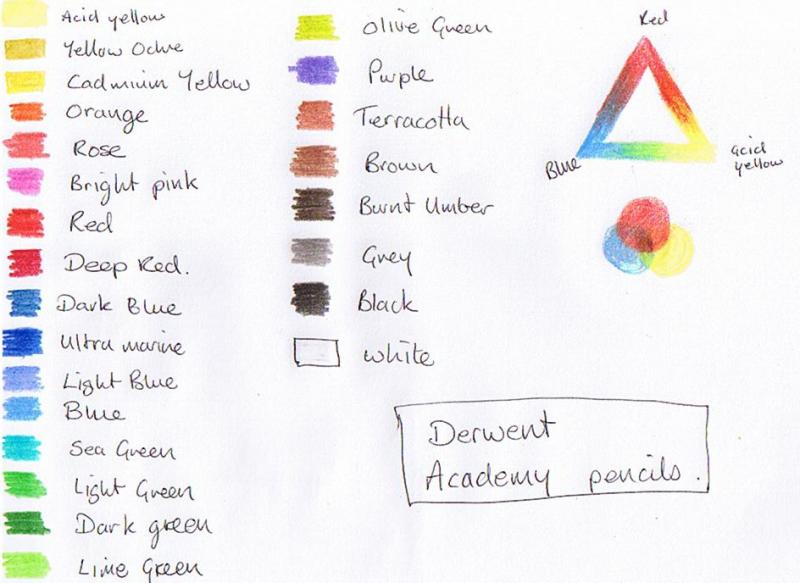 Acid yellow
Yellow Ochre
Cadmium Yellow
Orange
Rose
Bright pink
Red
Deep Red.
Dark Blue
Ultra marine
Light Blue
Blue
Sea Green
Light Green
Dark green
Lime Green
Olive Green
Purple
Terracotta
Brown
Burnt Umber
Grey
Black
White
Red
Blue
acid
yellow
Derwent
Academy pencils.